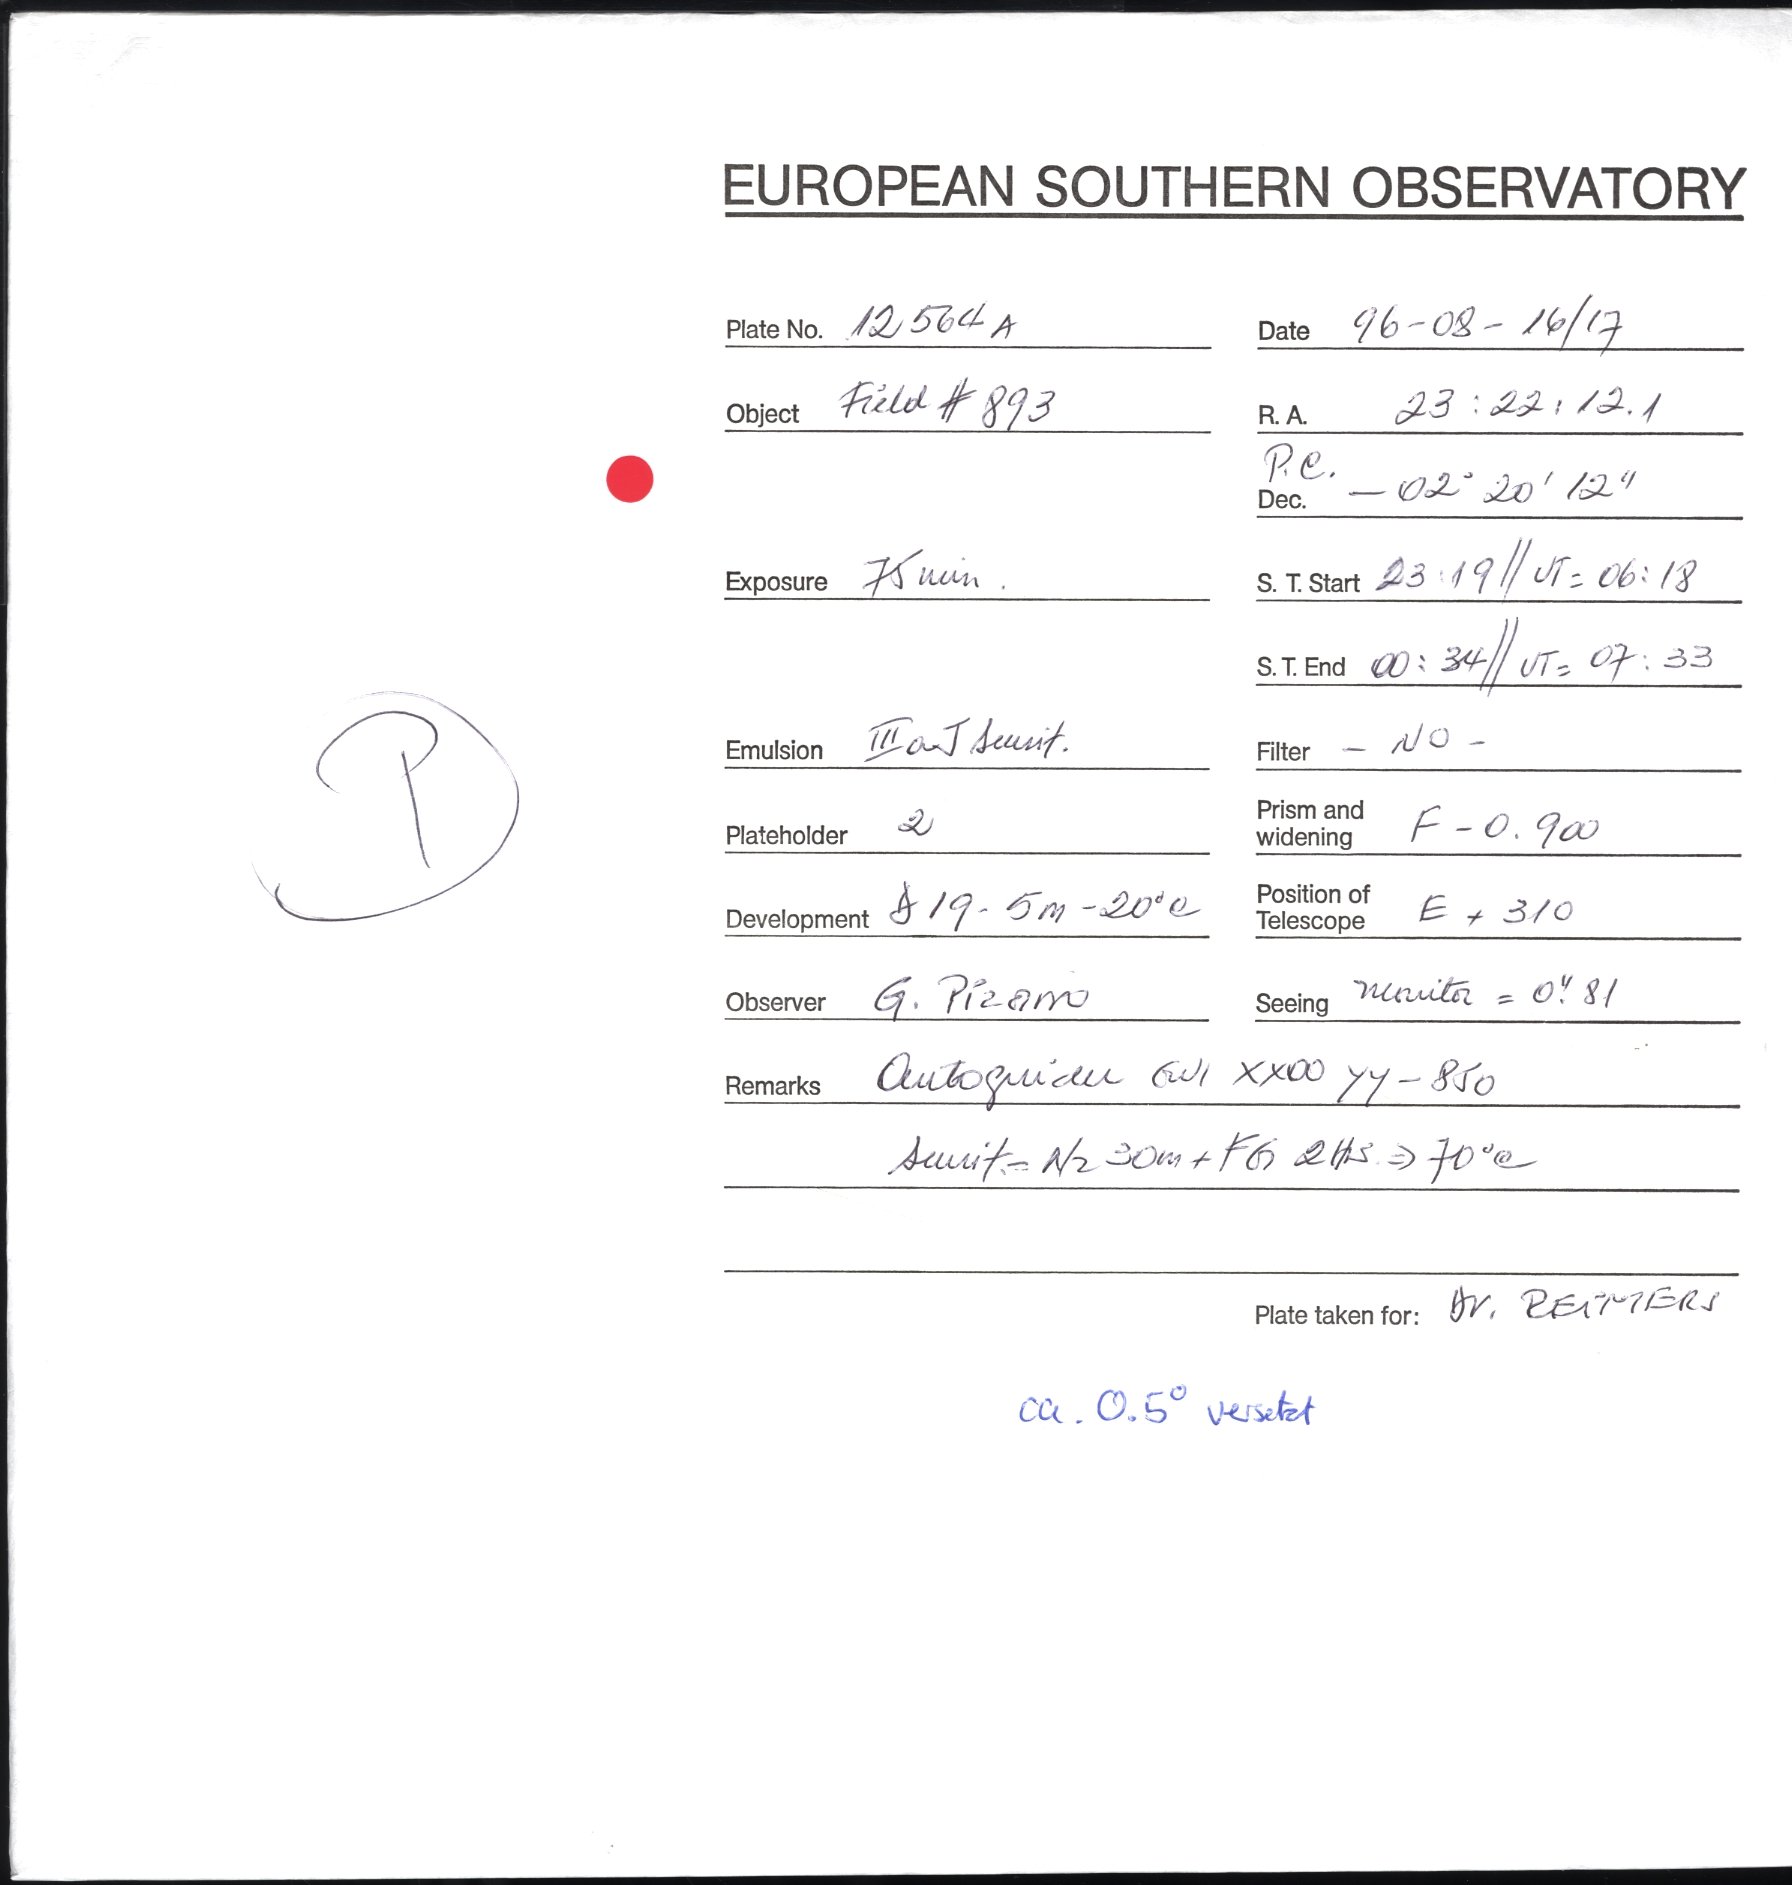 EUROPEAN SOUTHERN OBSERVATORY
Plate No. 12564 A
Date 96-08-16/17
Object Field # 893
R. A. 23 : 22 : 12.1
P.C.
Dec. - 02° 20' 12"
Exposure 75 min.
S. T. Start 23:19 // UT = 06:18
S. T. End 00:34 // UT = 07:33
P
Emulsion IIIaJ sensit.
Filter - NO -
Plateholder 2
Prism and widening F - 0.900
Development D19 - 5m - 20°C
Position of Telescope E + 310
Observer G. Pizarro
Seeing monitor = 0".81
Remarks Autoguider XX00 YY-850
Sensit. = N2 30m + FG 2Hs => 70°C
Plate taken for: Dr. REIMERS
ca. 0.5° versetzt